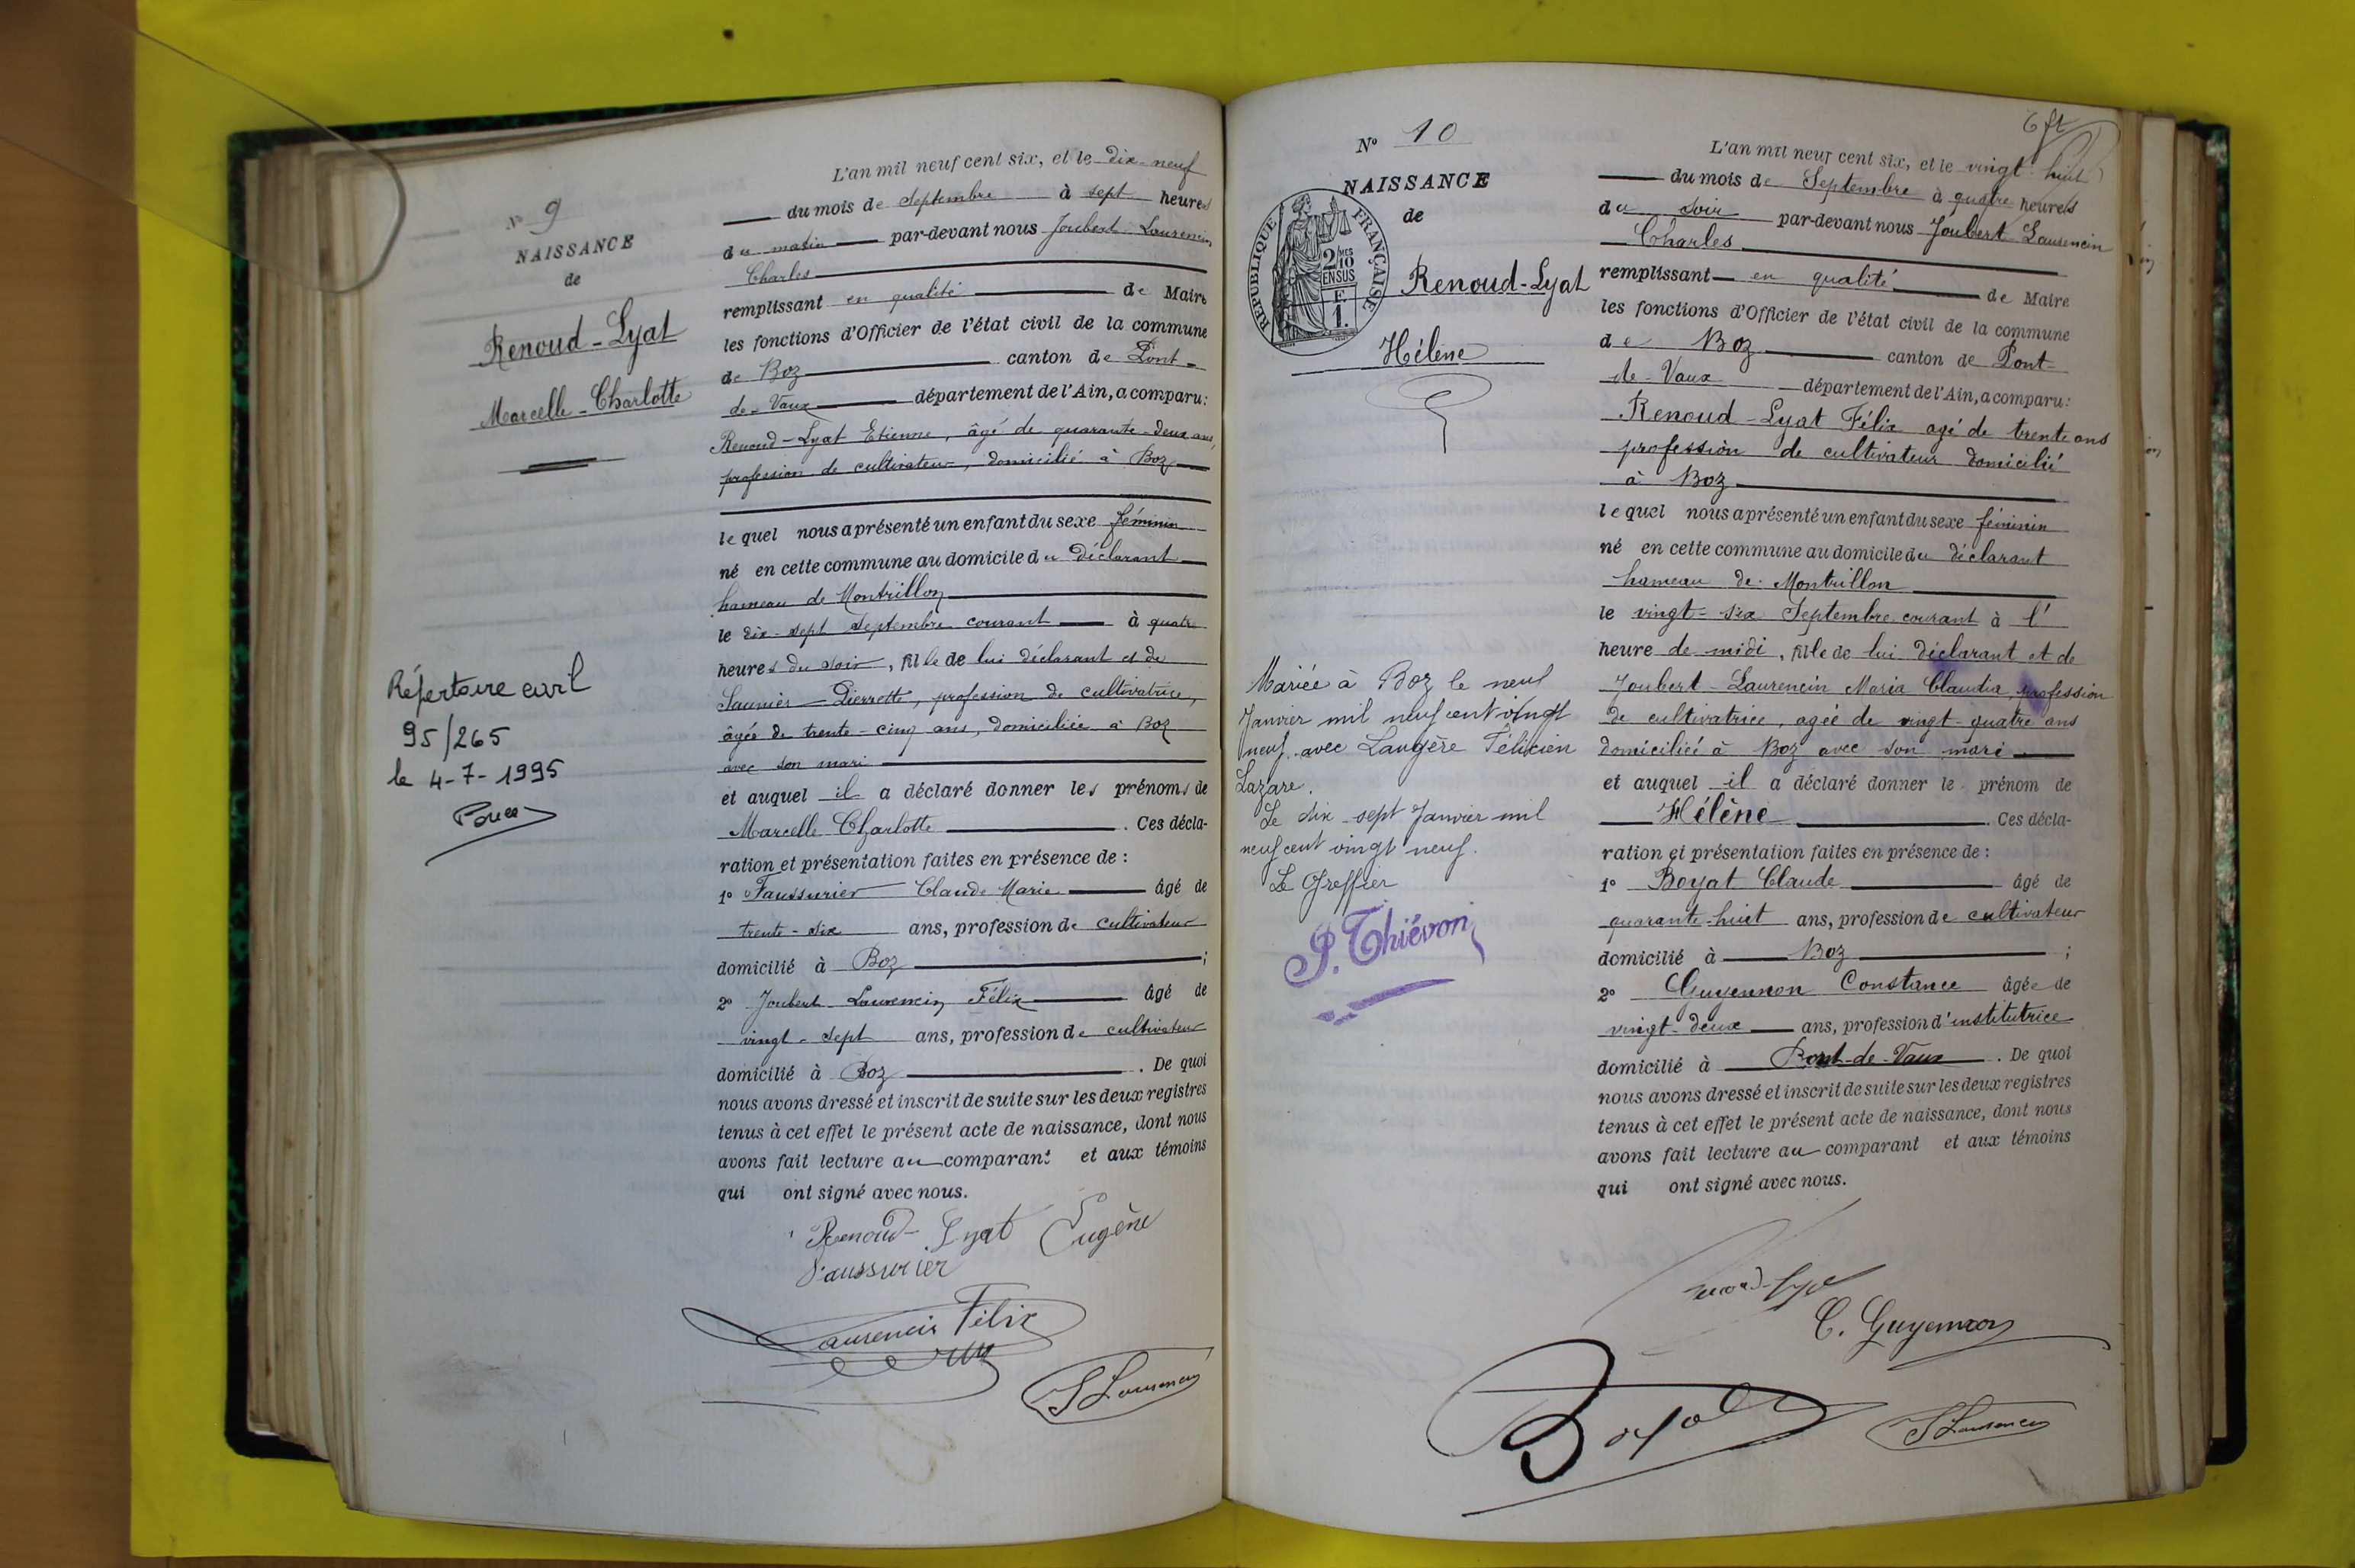 N° 9
NAISSANCE
de
Renoud-Lyat
Marcelle-Charlotte
Répertoire civil
95/265
le 4-7-1995
L'an mil neuf cent six, et le dix-neuf
du mois de Septembre à sept heures
du matin par-devant nous Joubert Laurencin
Charles
remplissant en qualité de Maire
les fonctions d'Officier de l'état civil de la commune
de Boz canton de Pont-
de-Vaux département de l'Ain, a comparu:
Renoud-Lyat Etienne, âgé de quarante-deux ans,
profession de cultivateur, domicilié à Boz
lequel nous a présenté un enfant du sexe féminin
né en cette commune au domicile du déclarant
hameau de Montrillon
le dix-sept Septembre courant à quatre
heures du soir, fille de lui déclarant et de
Saunier Pierrette, profession de cultivatrice,
âgée de trente-cinq ans, domiciliée à Boz
avec son mari
et auquel il a déclaré donner les prénoms de
Marcelle Charlotte. Ces décla-
ration et présentation faites en présence de :
1° Faussurier Claude Marie âgé de
trente-six ans, profession de cultivateur
domicilié à Boz ;
2° Joubert Laurencin Félix âgé de
vingt-sept ans, profession de cultivateur
domicilié à Boz. De quoi
nous avons dressé et inscrit de suite sur les deux registres
tenus à cet effet le présent acte de naissance, dont nous
avons fait lecture au comparant et aux témoins
qui ont signé avec nous.
Renoud-Lyat Eugène
Faussurier
Laurencin Félix
Laurencin
6
N° 10
NAISSANCE
de
RÉPUBLIQUE FRANÇAISE
2/10
EN SUS
Renoud-Lyat
Hélène
Mariée à Boz le neuf
Janvier mil neuf cent vingt
neuf avec Laugère Félicien
Lazare.
Le dix-sept Janvier mil
neuf cent vingt neuf.
Le Greffier
P. Thiévon
L'an mil neuf cent six, et le vingt huit
du mois de Septembre à quatre heures
du soir par-devant nous Joubert Laurencin
Charles
remplissant en qualité de Maire
les fonctions d'Officier de l'état civil de la commune
de Boz canton de Pont-
de-Vaux département de l'Ain, a comparu:
Renoud-Lyat Félix agé de trente ans
profession de cultivateur domicilié
à Boz
lequel nous a présenté un enfant du sexe féminin
né en cette commune au domicile du déclarant
hameau de Montrillon
le vingt-six Septembre courant à l'
heure de midi, fille de lui déclarant et de
Joubert-Laurencin Maria Claudia, profession
de cultivatrice, agée de vingt-quatre ans
domiciliée à Boz avec son mari
et auquel il a déclaré donner le prénom de
Hélène. Ces décla-
ration et présentation faites en présence de :
1° Boyat Claude âgé de
quarante-huit ans, profession de cultivateur
domicilié à Boz ;
2° Guyennon Constance âgée de
vingt-deux ans, profession d'institutrice
domicilié à Pont-de-Vaux. De quoi
nous avons dressé et inscrit de suite sur les deux registres
tenus à cet effet le présent acte de naissance, dont nous
avons fait lecture au comparant et aux témoins
qui ont signé avec nous.
C. Guyennon
Boyat
Laurencin